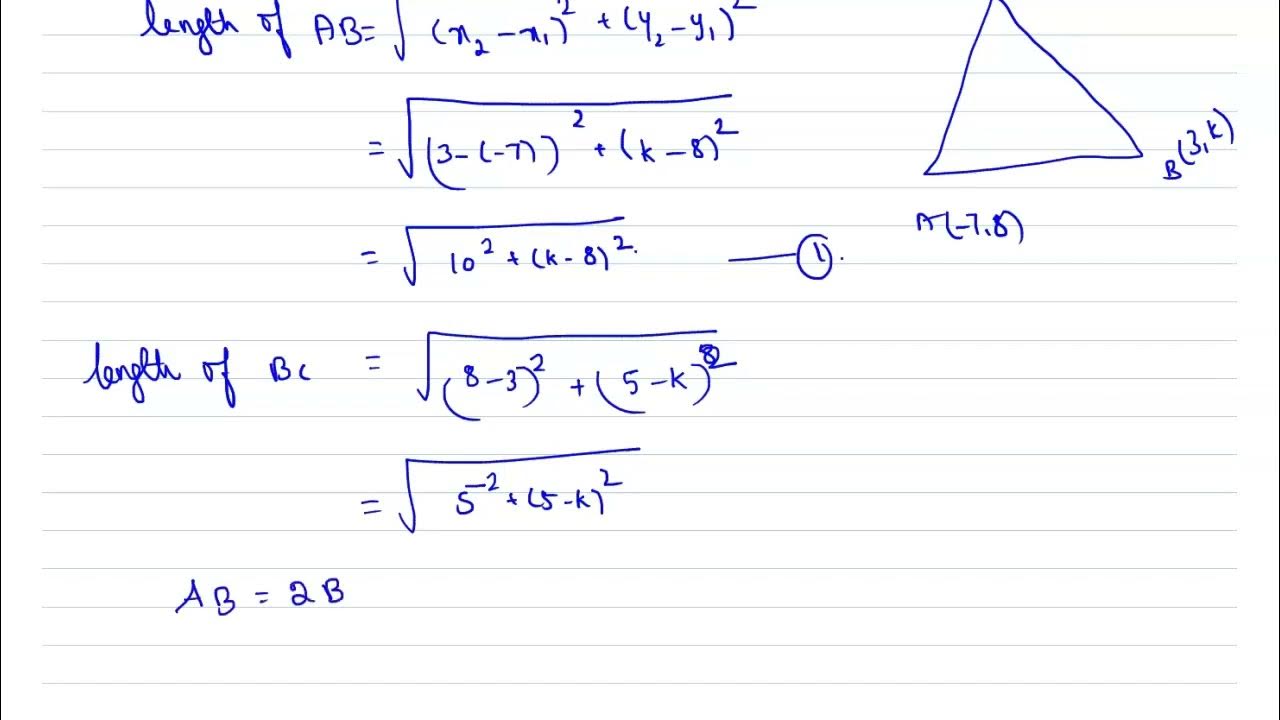 length of AB = √(x₂ - x₁)² + (y₂ - y₁)²
= √(3-(-7))² + (k-8)²
B(3, k)
A(-7, 8)
= √10² + (k-8)² —— ①.
length of BC = √(8-3)² + (5-k)²
= √5² + (5-k)²
AB = 2B